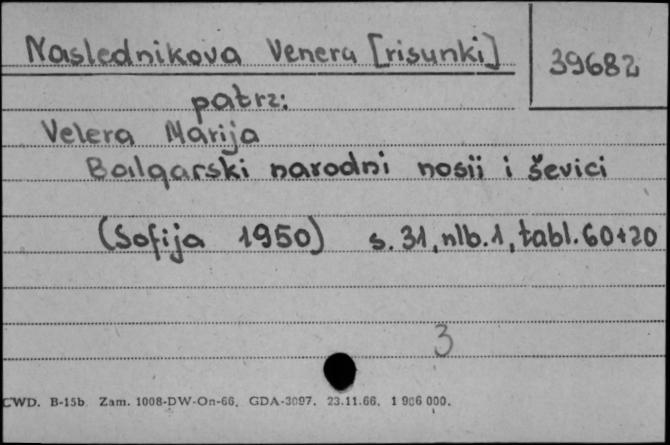 Naslednikova Venera [risunki]
39682
patrz:
Velera Marija
Balgarski narodni nosii i ševici
(Sofija 1950) s. 31, nlb. 1, tabl. 60+20
3
CWD. B-15b Zam. 1008-DW-On-66. GDA-3097. 23.11.66. 1 906 000.